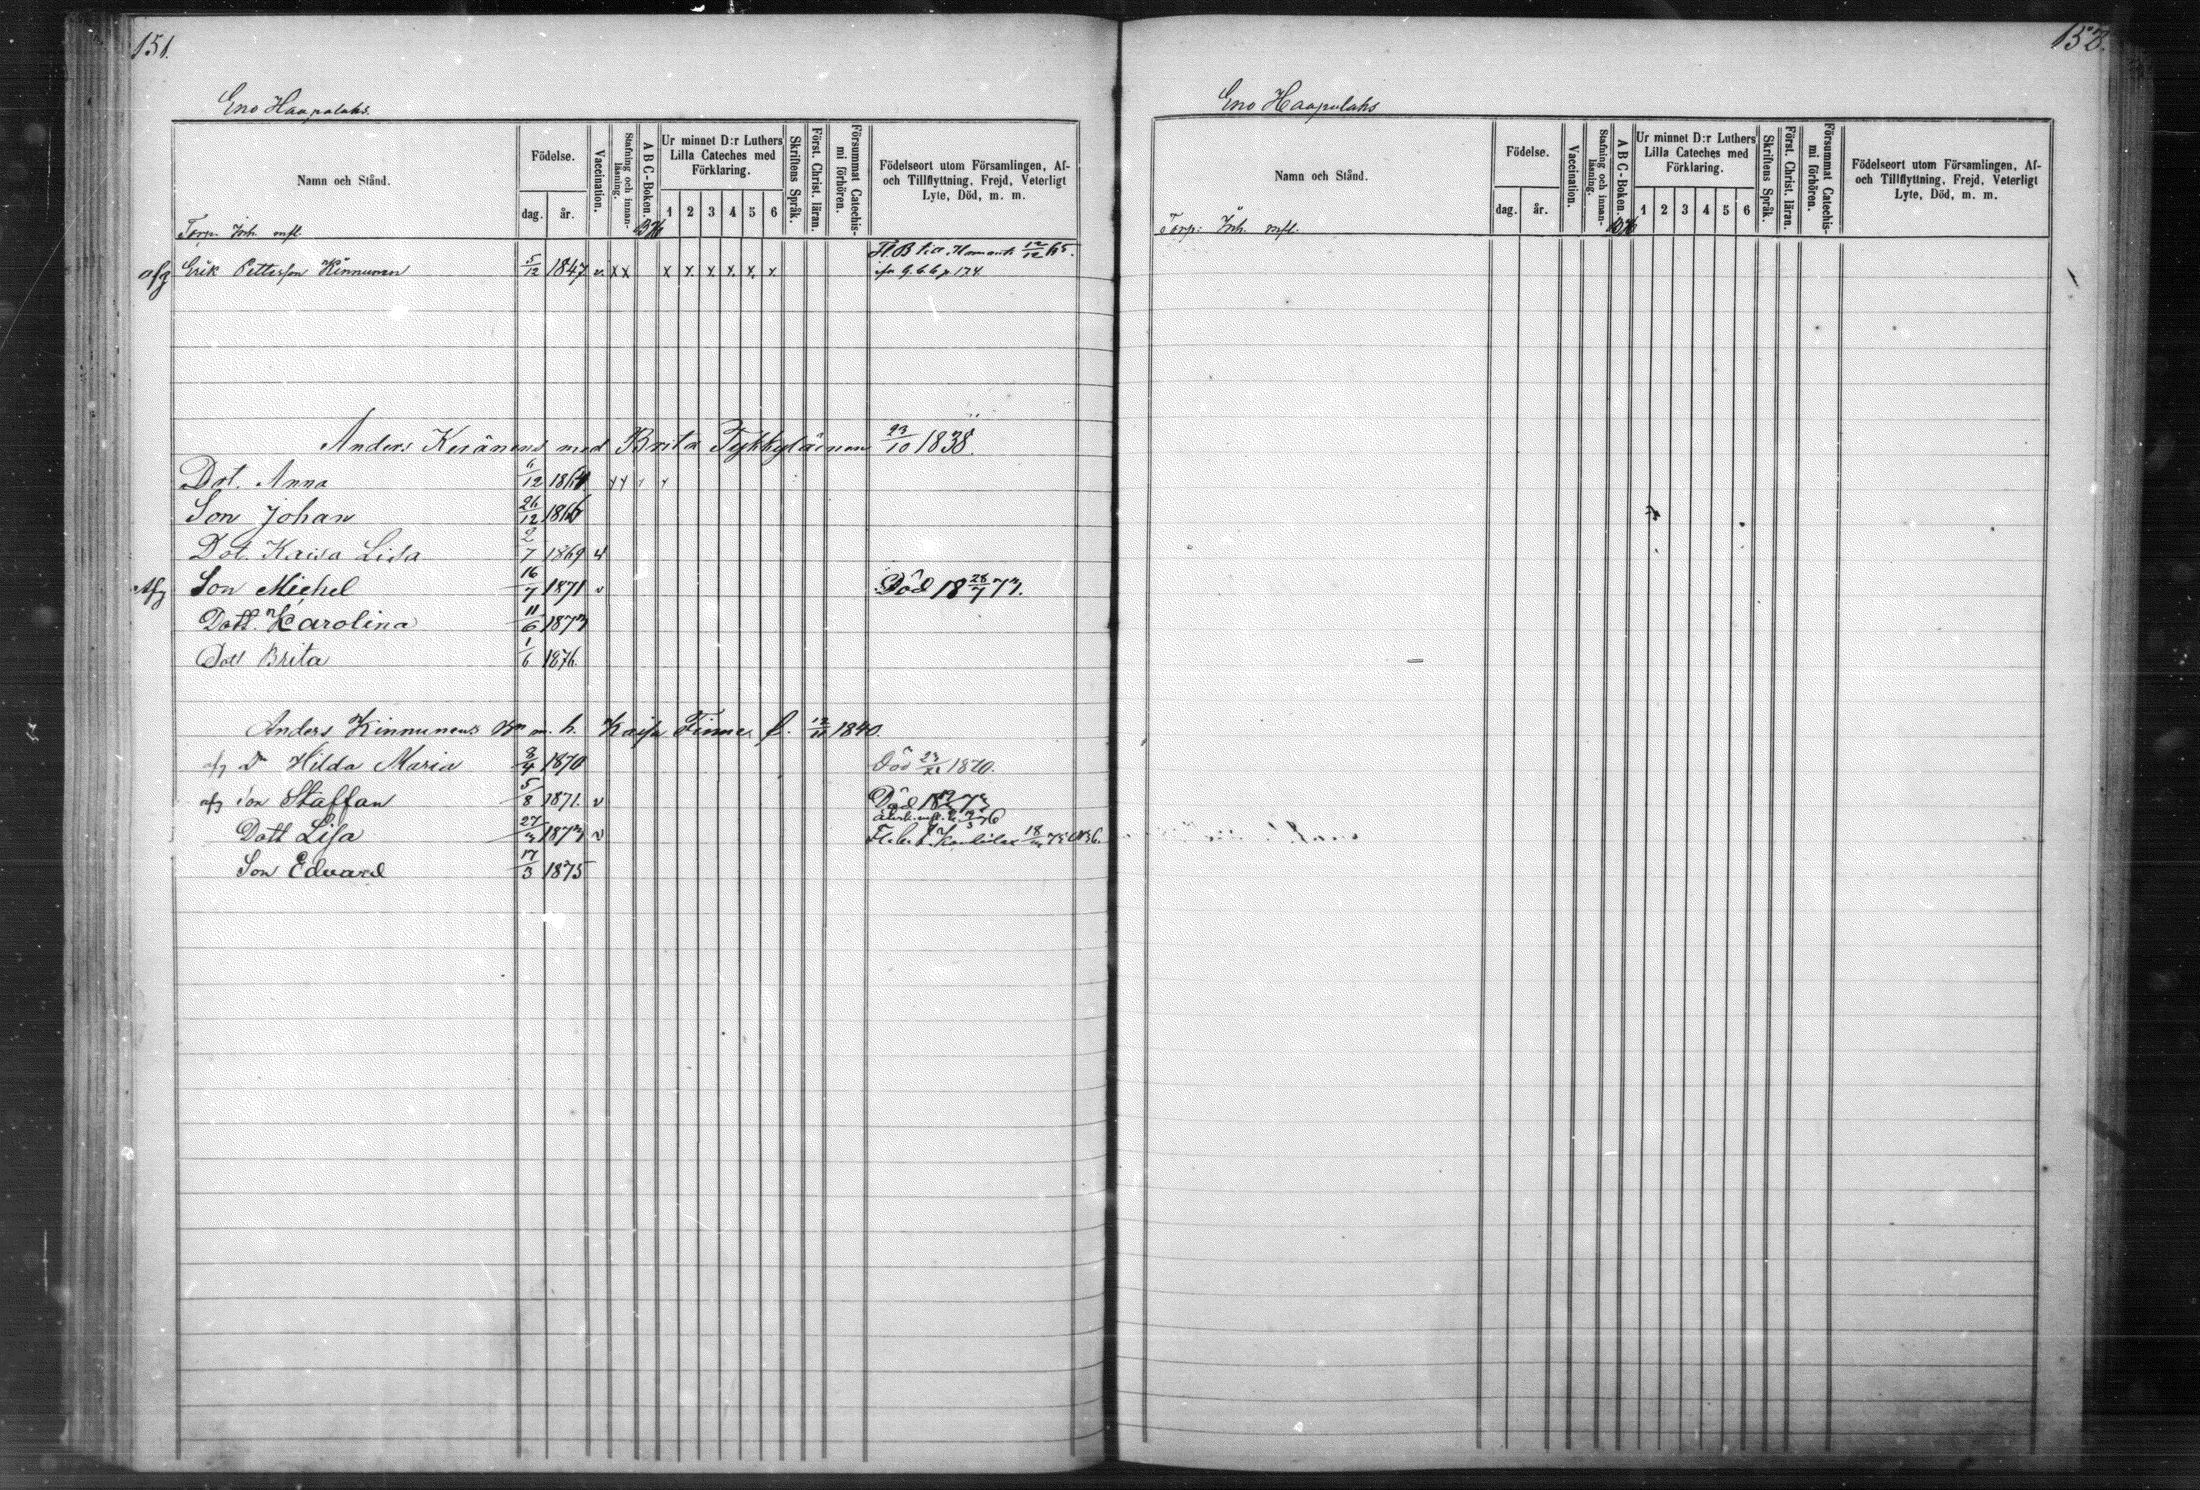 151.
Eno Haapalaks.
Namn och Stånd.
Födelse.
dag. år.
Vaccination.
Stafning och innanläsning.
A B C-Boken.
Ur minnet D:r Luthers Lilla Cateches med Förklaring.
1 2 3 4 5 6
Skriftens Språk.
Först. Christ. läran.
Försummat Catechismi förhören.
Födelseort utom Församlingen, Af- och Tillflyttning, Frejd, Veterligt Lyte, Död, m. m.
Torp. Inh. mfl.
afg Erik Petterson Kinnunen 5/12 1847 v x x x x x x x x 12/12 65.
p 174
Anders Keränens med Brita Tykkyläinen 23/10 1838.
Dot. Anna 6/12 1864
Son Johan 26/12 1866
Dot. Kaisa Lisa 2/7 1869 v
Afg Son Michel 16/7 1871 v Död 18 28/7 73.
Dott. Karolina 11/6 1873
Dott Brita 1/6 1876.
Anders Kinnunens m. h. Kaisa f. 1840.
afg D Hilda Maria 8/4 1870 död 1870.
afg Son Staffan 5/8 1871. v Död 73
Dott Lisa 27/3 1873 v
Son Edvard 17/3 1875
152.
Eno Haapalaks
Namn och Stånd.
Födelse.
dag. år.
Vaccination.
Stafning och innanläsning.
A B C-Boken.
Ur minnet D:r Luthers Lilla Cateches med Förklaring.
1 2 3 4 5 6
Skriftens Språk.
Först. Christ. läran.
Försummat Catechismi förhören.
Födelseort utom Församlingen, Af- och Tillflyttning, Frejd, Veterligt Lyte, Död, m. m.
Torp: Inh. mfl.